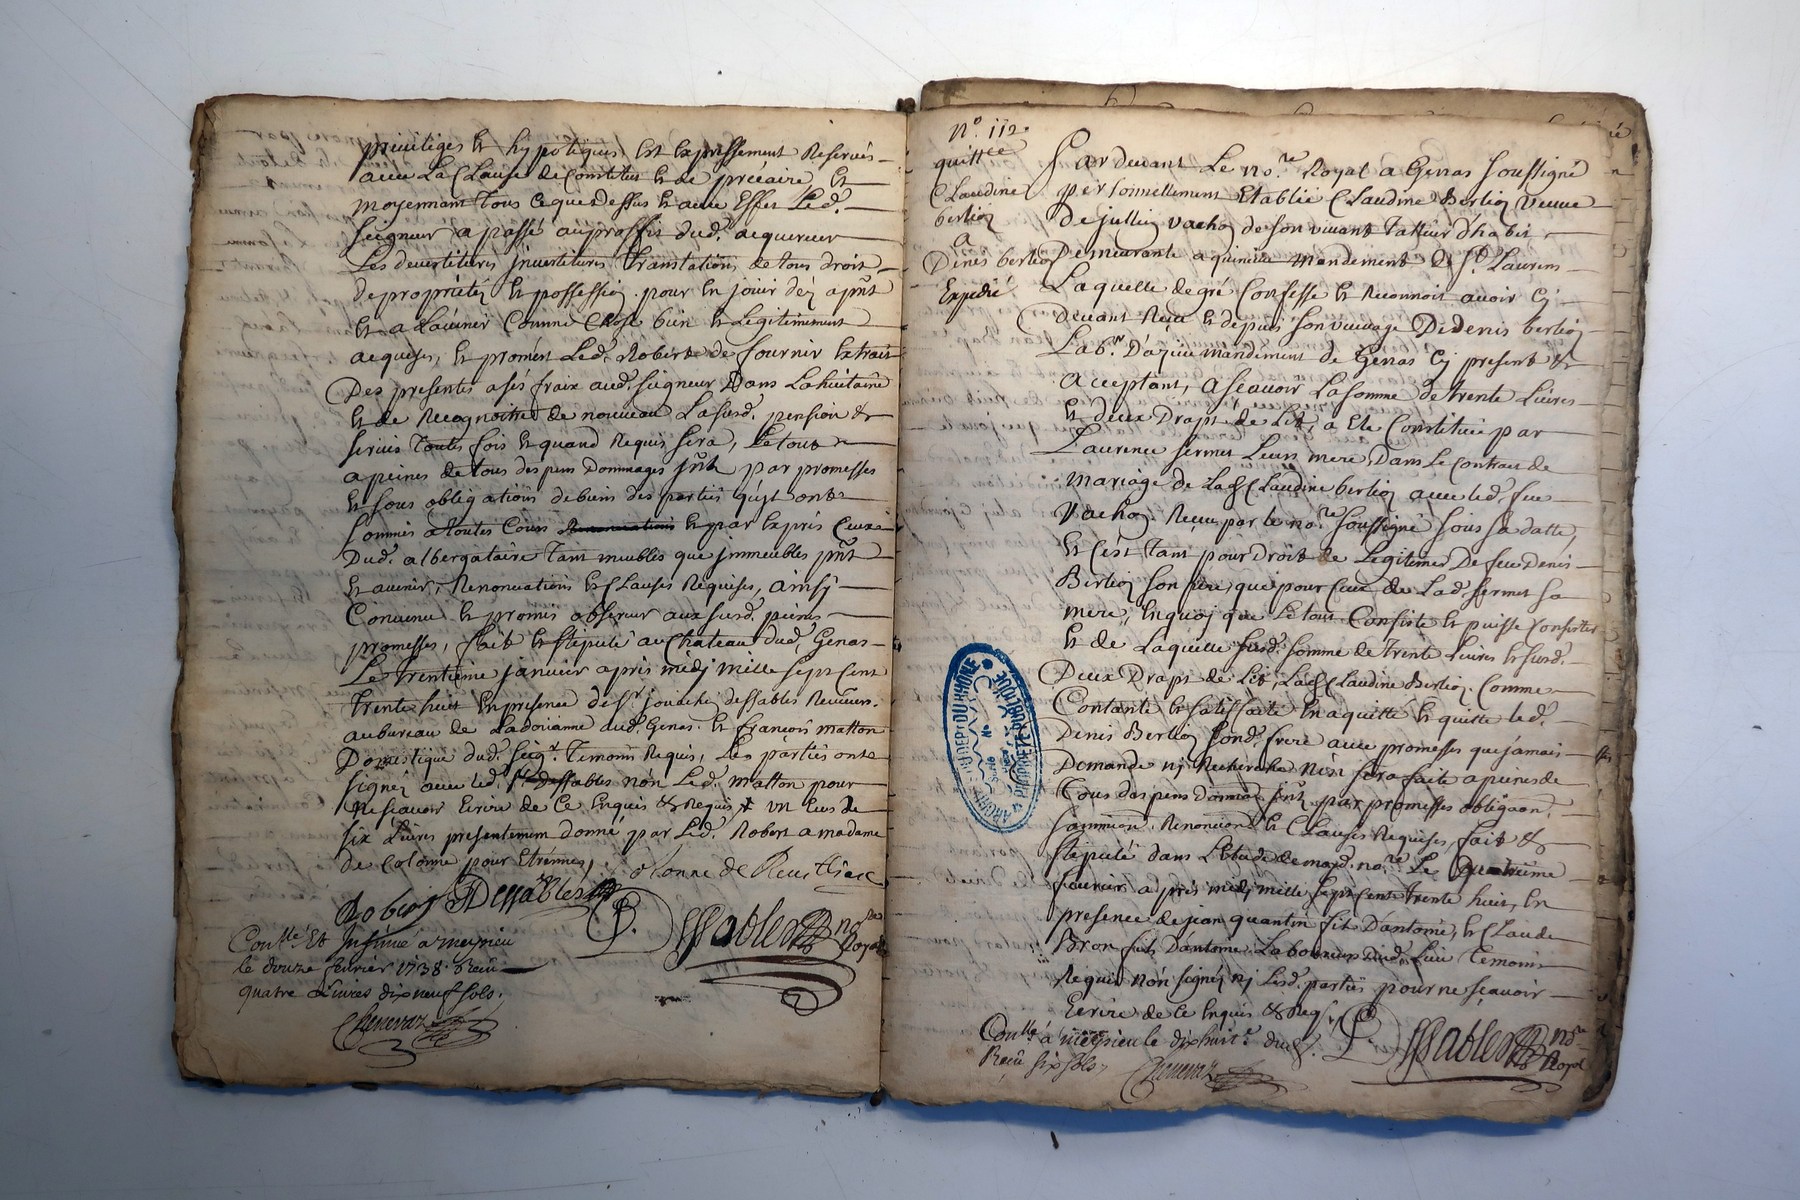 privileges et hypoteques, est expressement Reservés
avec La Clause de Constitut et de precaire, Et
moyennant Tous ceque dessus et avec Effet Led.
Seigneur a passé auproffit dud. acquereur
Les devestitures jnvestitures Translations de tous droit
de proprietéz et possession. pour En jouir déz apnt
Et a Lavenir Comme Chose bien et Legitimement
acquises, et promest Led. Robert de fournir Extrait
Des presentes a sés fraix aud. seigneur Dans La huitaine
Et de Recognoitre de nouveau La susd. pension &
servis Toutes fois et quand Requis sera, Le tout
apeines de tous despens Dommages jnts par promesses
Et sous obligations debiens des parties qu'yt ont
sommis atoutes Cours et par Exprés Ceux
Dud. albergataire Tant meubles que jmmeubles pnt
Et avenir, Renonciations et Clauses Requises, ainsy
Convenu et promis observer aux susd. peines
promesses, fait et stipulé au Chateau dud. Genas
Le trentieme janvier apres midj mille sept cent
trente huit En presence de sr. joachi dessables Receveur.
au bureau de La doüanne aud. Genas. et françois matton
Domestique dud. seigr. Temoins Requis, Les parties ont
signéz avec led. sr. Dessables non Led. matton pour
ne sçavoir Ecrire de Ce Enquis & Requis, un Ecus de
six Livres presentement donné par Led. Robert a madame
de Colonne pour Etrennes,
Robert Dessables
P. Dessables nore Royal
Conllé Et Insinué a meyzieu
le douze fevrier 1738. Reçu
quatre Livres dix neuf sols.
Chenevaz
No. 112.
quittce
Claudine
bertion
a
Denis bertion
Expedié
Par devant Le nore. Royal a Genas soussigné
personnellement Etablie Claudine Bertion veuve
de jullien vachon de son vivant Tallieur d'habit
Demeurante a quincieu mandement de St. Laurens
Laquelle de gré Confesse et Reconnoit avoir Cy
devant Reçu et depuis son vuivage De denis bertion
Labr. D'azieu mandement de Genas Cy present &
acceptant, a sçavoir La somme de trente Livres
Et deux Draps de Lit, a Ele Constitué par
Laurence fermet Leurs mere, Dans Le Contract de
mariage de Lad. Claudine bertion avec led. feu
Vachon. Reçu par le nore. soussigné sous sa datte,
Et c'est Tant pour droit de Legitimes De feu denis
Bertion son pere, que pour ceux de Lad. fermet sa
mere, Enquoj que Le tout Consiste et puisse Consister
Et de Laquelle susd. somme de trente Livres et susd.
Deux Draps de Lit, Lad. Claudine Bertion. Comme
Contante et satisfaite En aquitte et quitte led.
Denis Bertion sond. frere avec promesses que jamais
Demande nj Recherche N'en sera faite a peines de
Tous despens dommas. jnts. par promesses obligaon.
sommion. Renoncions et Clauses Requises, fait &
stipulé dans L'etude de moyd. nore. Le quatrieme
fevrier apres midj mille sept cent trente huit, En
presence de jean quantin fils D'antoine, et Claude
Bron fils D'antoine Laboureurs dud. Lieu temoins
Requis non signéz nj Lesd. parties pour ne sçavoir
Ecrire de Ce Enquis & Reqs.
P. Dessables nore Royal
Conllé a meyzieu le dixhuite. dud.
Reçu six sols,
Chenevaz
ARCHIVES DU DEPT DU RHONE
PROPRIETE PUBLIQUE